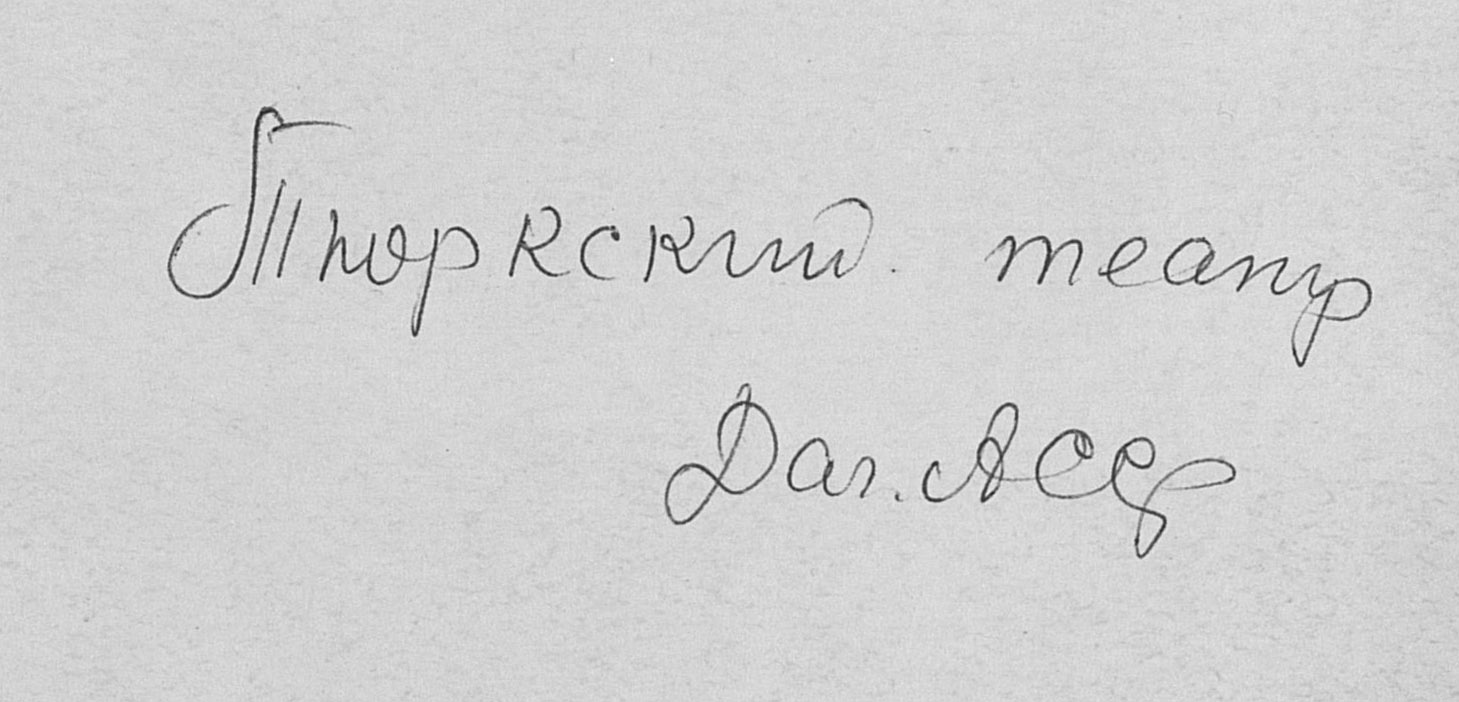 Тюркский театр
Даг. АССР